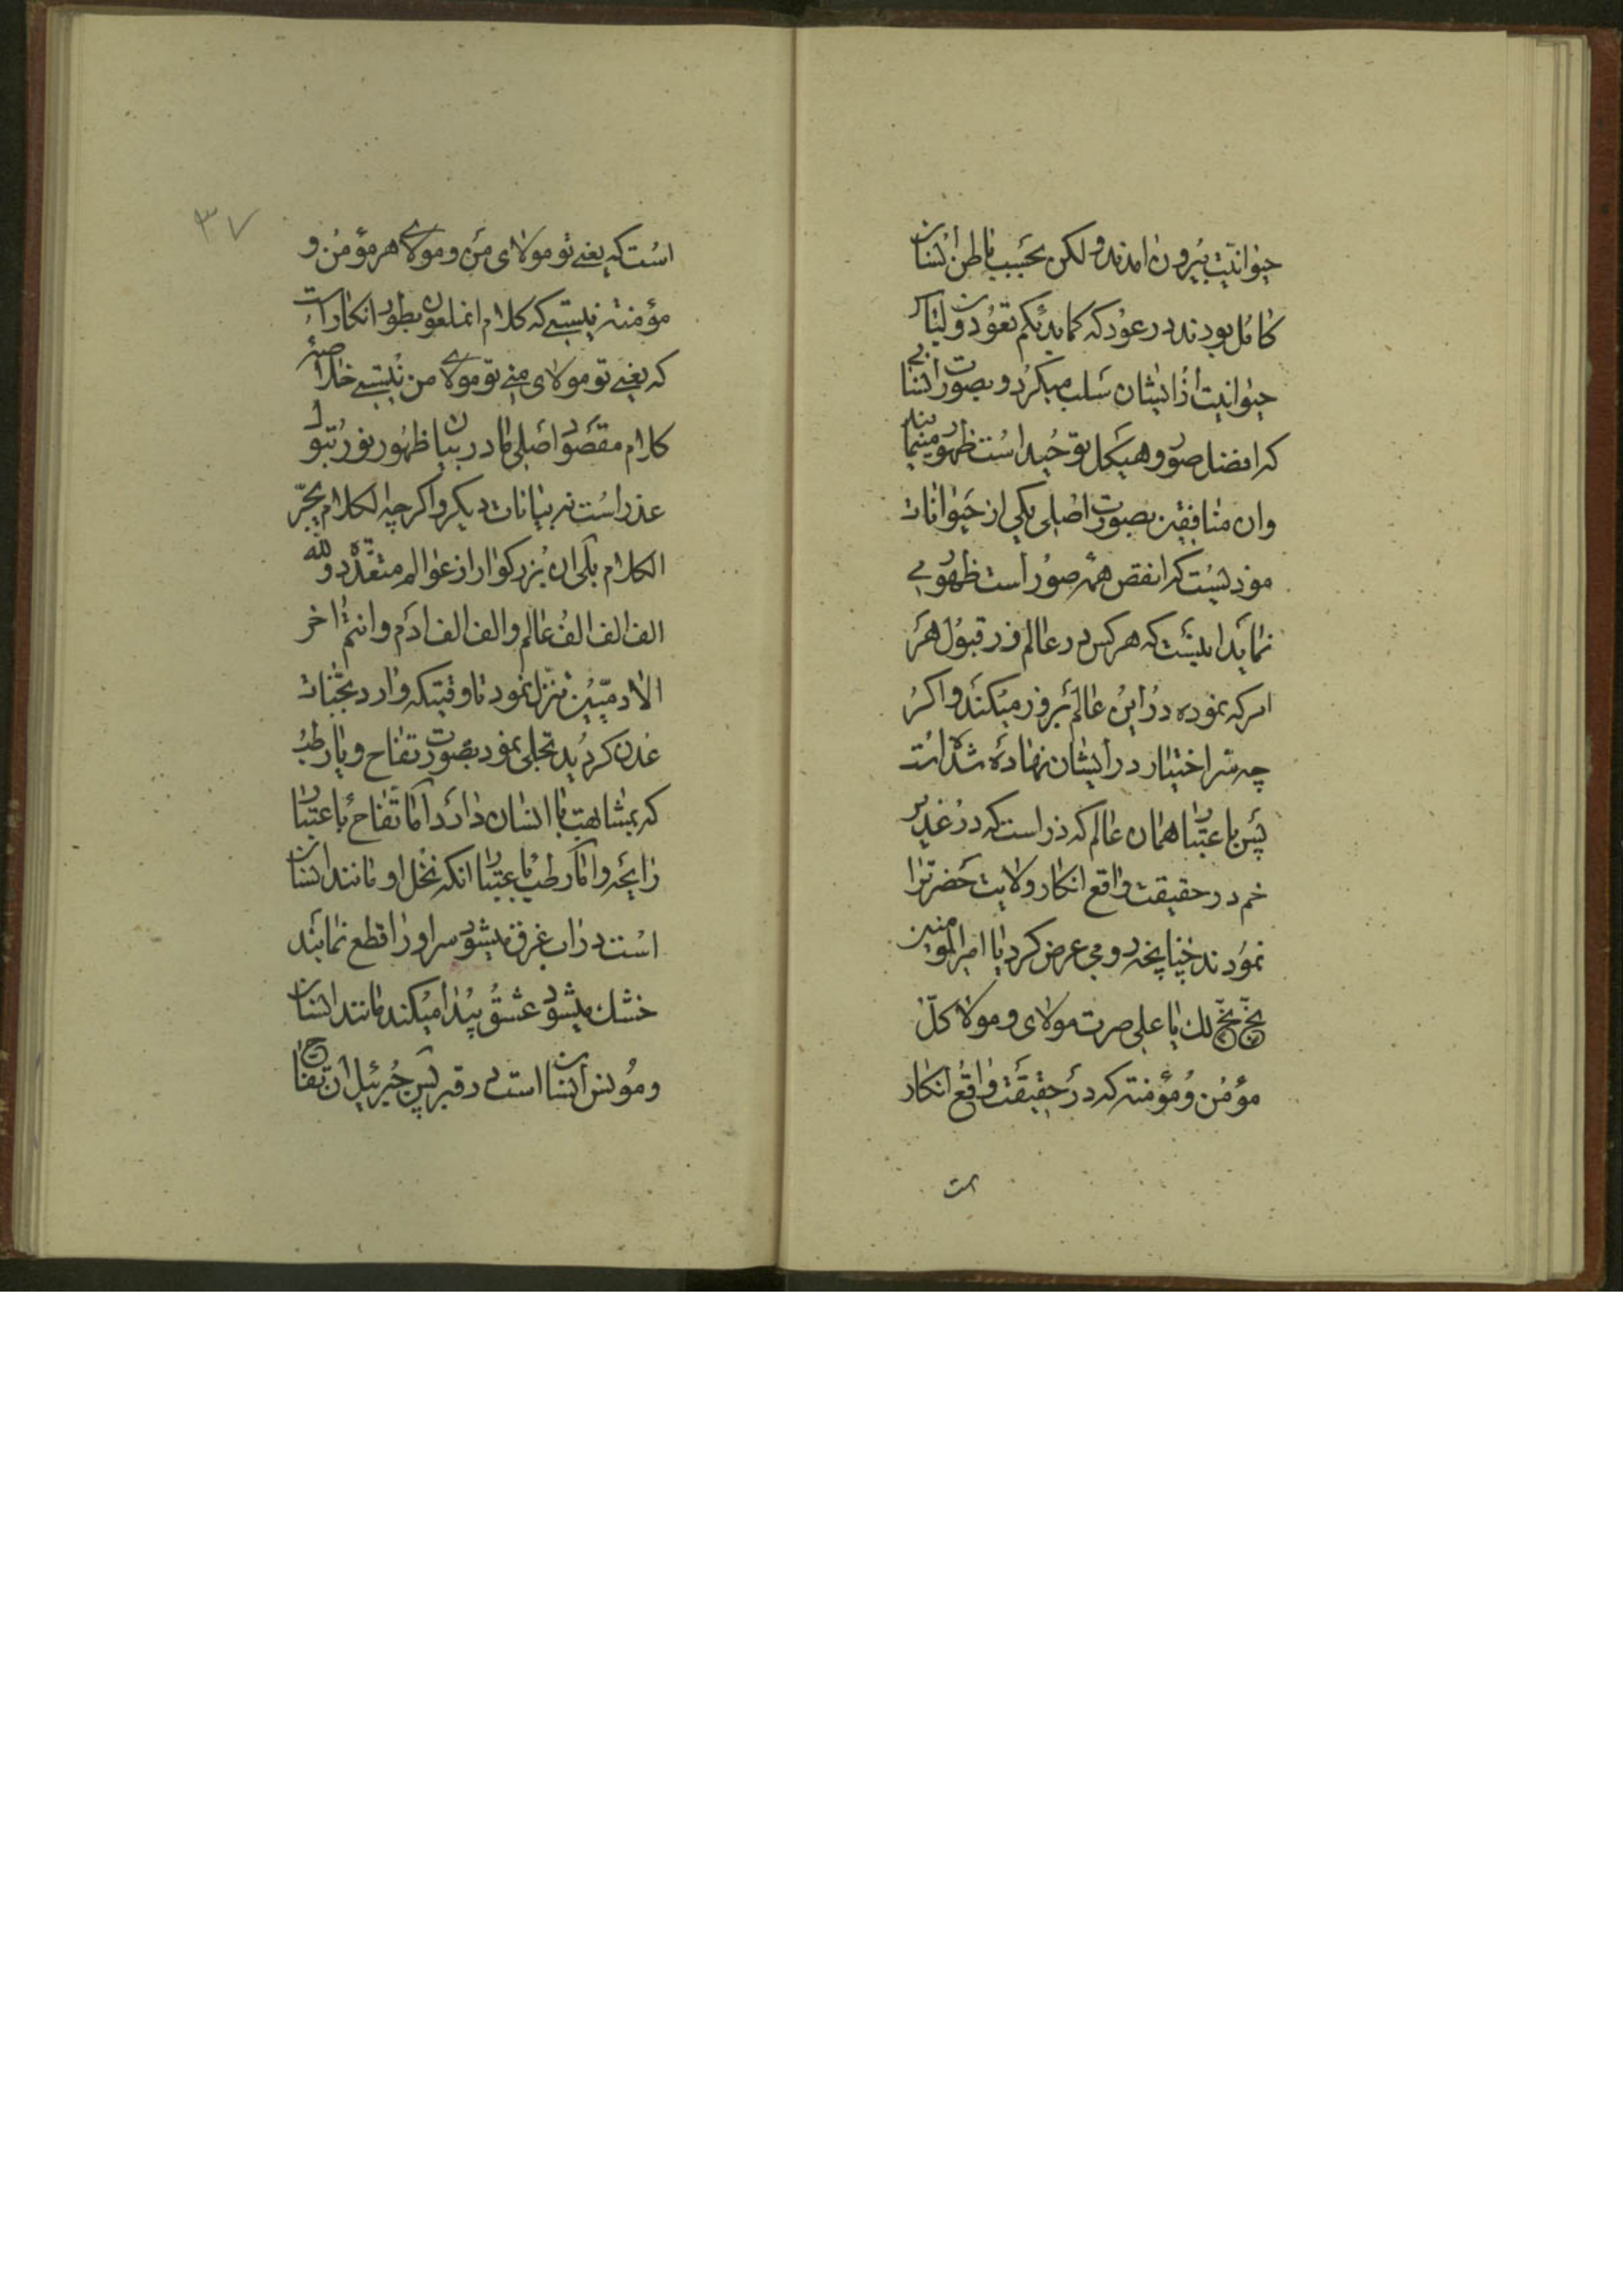 حیوانیّت بیرون امدند ولکن بحسب باطن انسان
کامل بودند در عود که کما بدئکم تعودون لباس
حیوانیت از ایشان سلب میکرد و بصورت انسانی
که افضل صور و هیکل توحید است ظهور مینمایند
وان منافقین بصورت اصلی یکی از حیوانات
موذیست که انقص همه صور است ظهور می
نماید اینست که هرکس در عالم ذر قبول هر
امر که نموده در این عالم بروز میکند و اکر
چه سر اختیار در ایشان نهاده شده است
پس باعتبار همان عالم که ذر است که در غدیر
خم در حقیقت واقع انکار ولایت حضرترا
نمودند چنانچه دومی عرض کرد یا امیرالمومنین
بخّ بخّ لك یا علی صرت مولای و مولا کلّ
مؤمن و مؤمنة که در حقیقت واقع انکار
است که یعنی تو مولای من و مولای هر مؤمن و
مؤمنه نیستی که کلام انملعون بطور انکار است
که یعنی تو مولای منی تو مولای من نیستی خلاصه
کلام مقصود اصلی ما در بیان ظهور نور بتول
عذراست نه بیانات دیکر و اکرچه الکلام یجرّ
الکلام بلی ان بزرکوار از عوالم متعدّده ولله
الف الف الف عالم والف الف ادم وانتم اخر
الادمیّین تنزل نمود تا وقتیکه وارد بجنّات
عدن کردید تجلی نمود بصورت تفاح و یا رطب
که بمشابهت با انسان دارد اما تفاح باعتبار
رایحه و اما رطب باعتبار انکه نخل او مانند انسان
است در اب غرق میشود سر او را قطع نمایند
خشك میشود عشق پیدا میکند مانند انسان
ومونس انسان است در قبر پس جبرئیل ان تفاح
۳۷